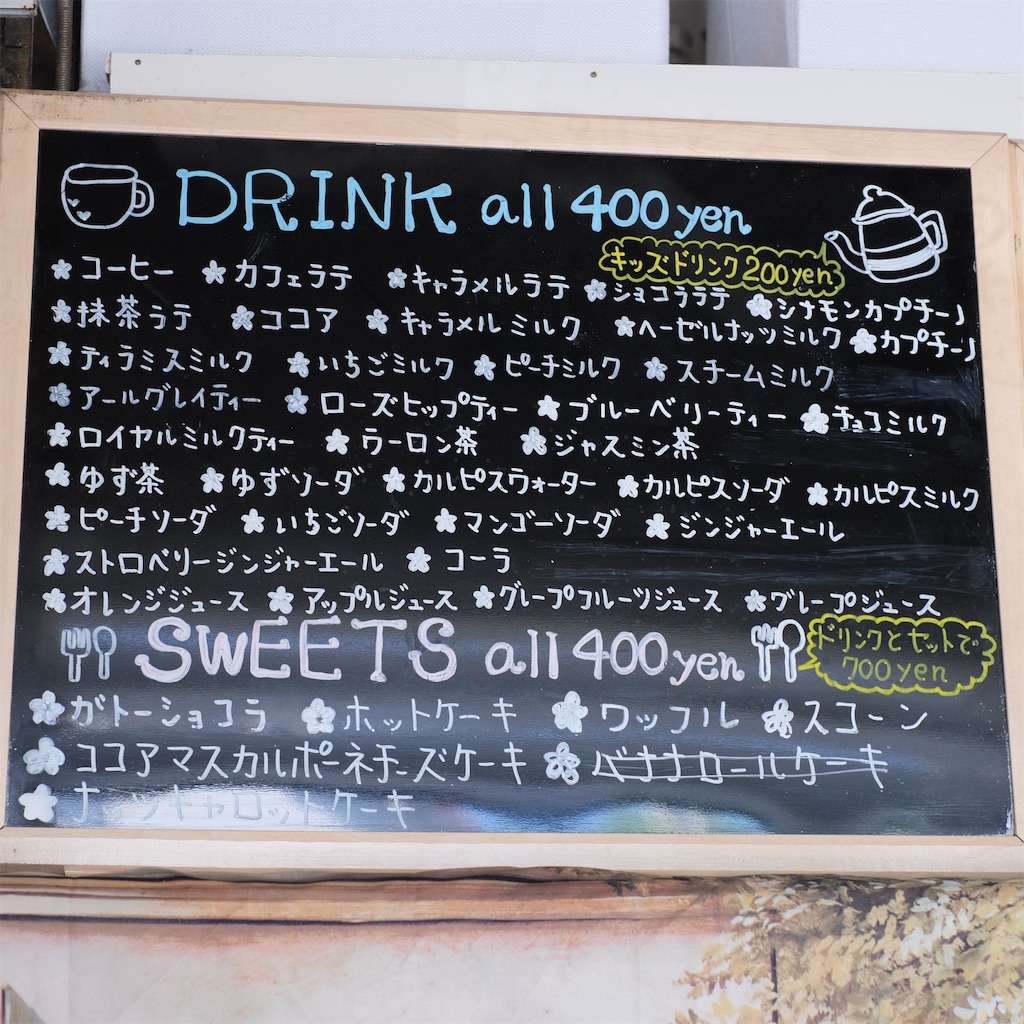 DRINK all 400 yen
キッズドリンク200yen
コーヒー カフェラテ キャラメルラテ ショコララテ シナモンカプチーノ
抹茶ラテ ココア キャラメルミルク ヘーゼルナッツミルク カプチーノ
ティラミスミルク いちごミルク ピーチミルク スチームミルク
アールグレイティー ローズヒップティー ブルーベリーティー チョコミルク
ロイヤルミルクティー ウーロン茶 ジャスミン茶
ゆず茶 ゆずソーダ カルピスウォーター カルピスソーダ カルピスミルク
ピーチソーダ いちごソーダ マンゴーソーダ ジンジャーエール
ストロベリージンジャーエール コーラ
オレンジジュース アップルジュース グレープフルーツジュース グレープジュース
SWEETS all 400 yen
ドリンクとセットで
700yen
ガトーショコラ ホットケーキ ワッフル スコーン
ココアマスカルポーネチーズケーキ バナナロールケーキ
ナッツキャロットケーキ